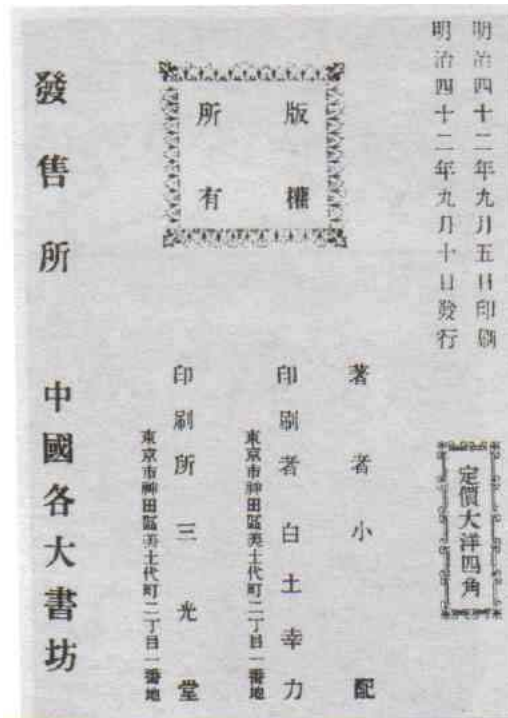 明治四十二年九月五日印刷
明治四十二年九月十日發行
定價大洋四角
版權
所有
著者小配
印刷者白土幸力
東京市神田區美土代町二丁目一番地
印刷所三光堂
東京市神田區美土代町二丁目一番地
發售所 中國各大書坊